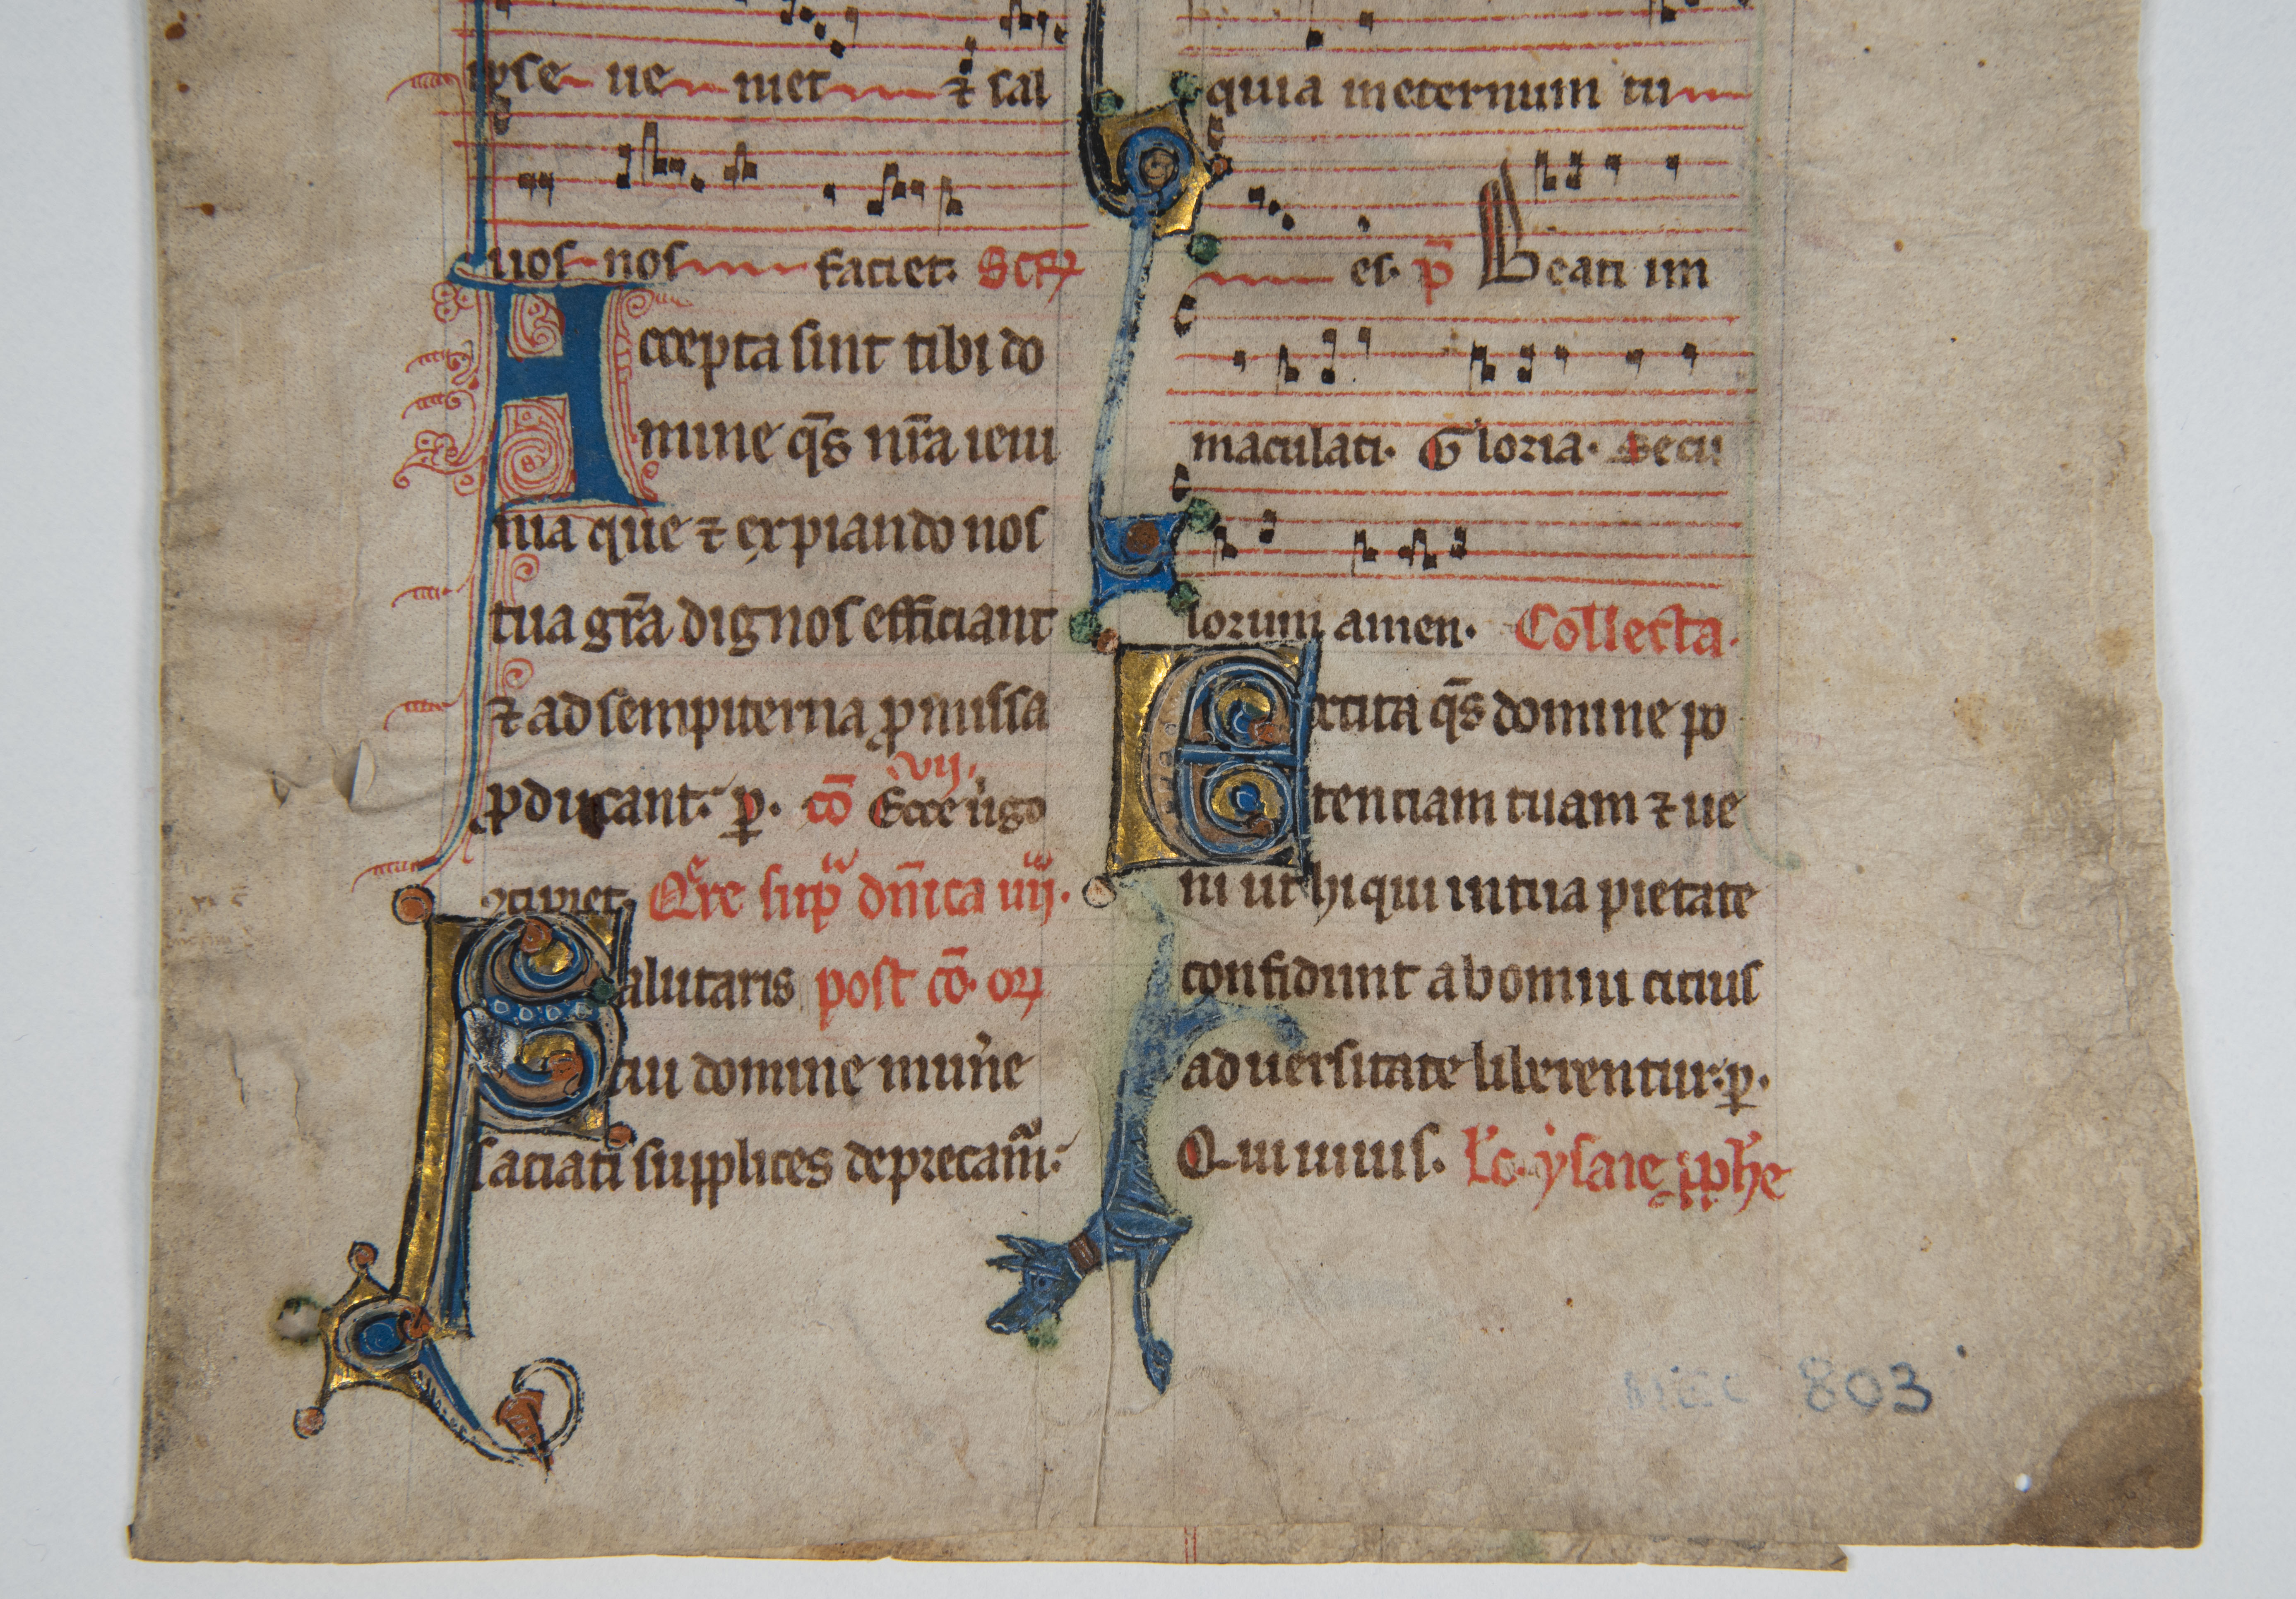 ipse ue niet ⁊ sal
uos nos faciet. Secͬ
Accepta sint tibi do
mine q̄s nr̄a ieiu
nia que ⁊ expiando nos
tua gr̄a dignos efficiant
⁊ ad sempiterna ꝓmissa
ꝓducant. ꝑ. cō Ecce uigo
vij,
ꝯcipiet. Qͬre supͣ dn̄ica iiij.
Salutaris post cō. oꝝ
tui domine mun̾e
satiati supplices deprecam̃.
quia in eternum tu
es. p̄ Beati im
maculati. Gloria. Secu
lorum amen. Collecta.
Excita q̄s domine po
tentiam tuam ⁊ ue
ni ut hi qui in tua pietate
confidunt ab omni citius
aduersitate liberentur. ꝑ.
Qui uiuis. Lc̄. ysaie ꝓphe
803